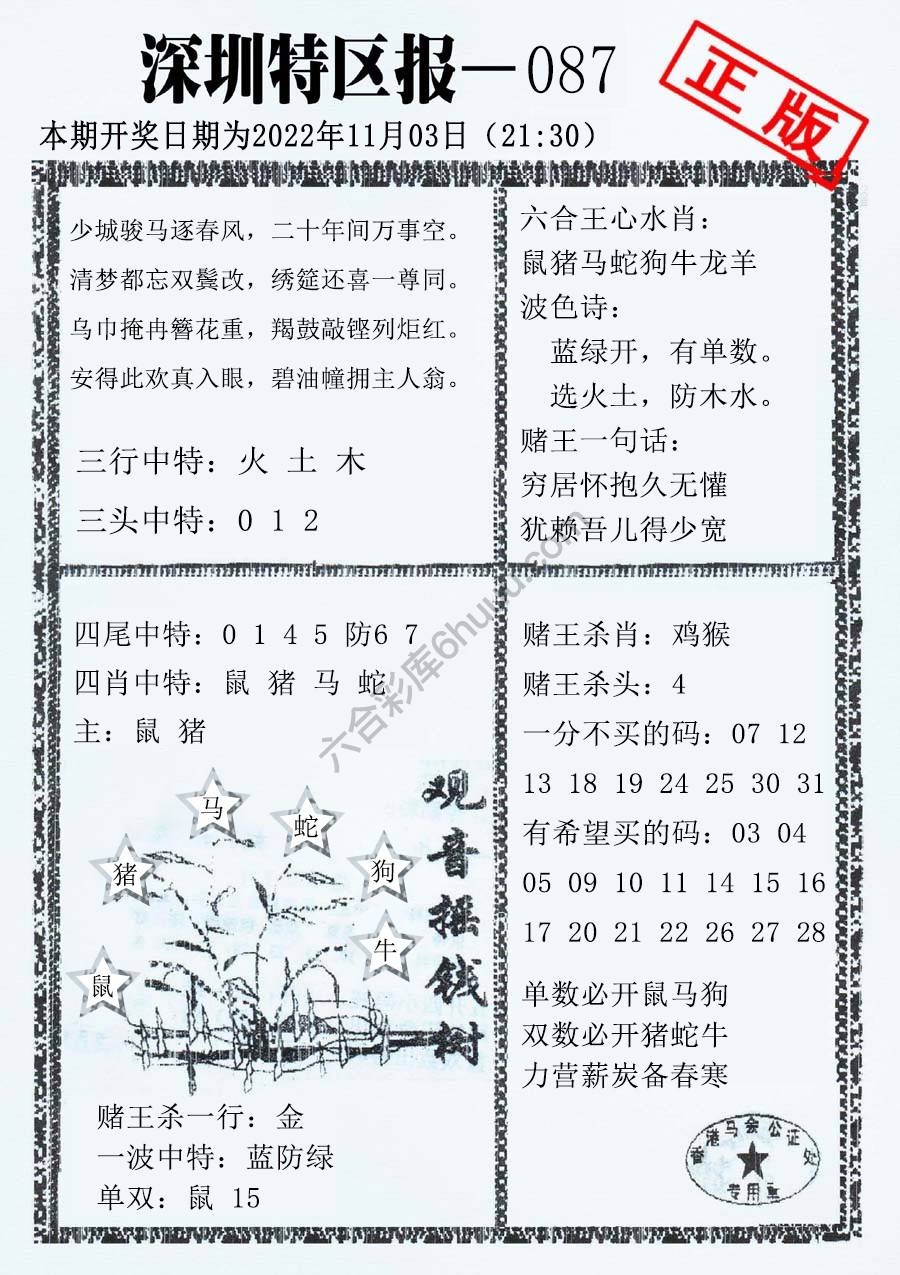 深圳特区报—087
正版
本期开奖日期为2022年11月03日（21:30）
少城骏马逐春风，二十年间万事空。
清梦都忘双鬓改，绣筵还喜一尊同。
乌巾掩冉簪花重，羯鼓敲铿列炬红。
安得此欢真入眼，碧油幢拥主人翁。
三行中特：火 土 木
三头中特：0 1 2
六合王心水肖：
鼠猪马蛇狗牛龙羊
波色诗：
蓝绿开，有单数。
选火土，防木水。
赌王一句话：
穷居怀抱久无懽
犹赖吾儿得少宽
四尾中特：0 1 4 5 防6 7
四肖中特：鼠 猪 马 蛇
主：鼠 猪
马
蛇
猪
狗
牛
鼠
观音摇钱树
赌王杀一行：金
一波中特：蓝防绿
单双：鼠 15
赌王杀肖：鸡猴
赌王杀头：4
一分不买的码：07 12
13 18 19 24 25 30 31
有希望买的码：03 04
05 09 10 11 14 15 16
17 20 21 22 26 27 28
单数必开鼠马狗
双数必开猪蛇牛
力营薪炭备春寒
香港马会公证处
专用章
六合彩库6huuu.com